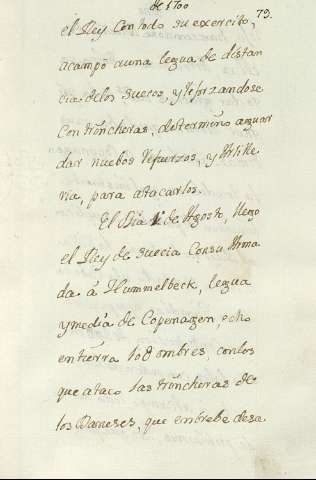 de 1700
73.
el Rey con todo su exercito,
acampò a una legua de distan
cia de los suecos, y reforzandose
con trincheras, determino aguar
dar nuebos refuerzos, y Artille
ria, para atacarlos.
El Dia 1 de Agosto, llego
el Rey de suecia con su Arma
da â Hummelbeck, legua
y media de Copenagen, echo
en tierra 100 ombres, con los
que ataco las trincheras de
los Daneses, que entrebe desa